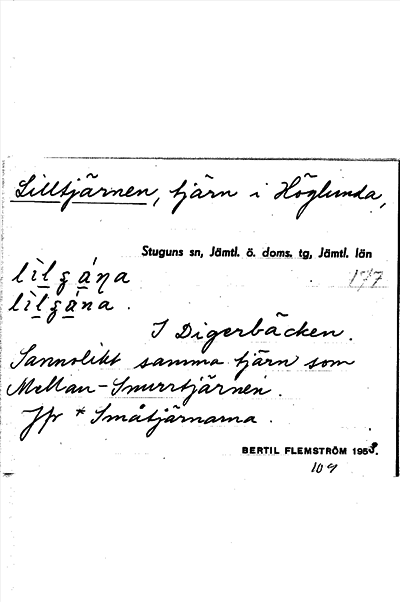 Lilltjärnen, tjärn i Höglunda,
Stuguns sn, Jämtl. ö. doms. tg, Jämtl. län
177
I Digerbäcken.
Sannolikt samma tjärn som
Mellan-Snurrtjärnen.
Jfr * Småtjärnarna.
BERTIL FLEMSTRÖM 1953.
109